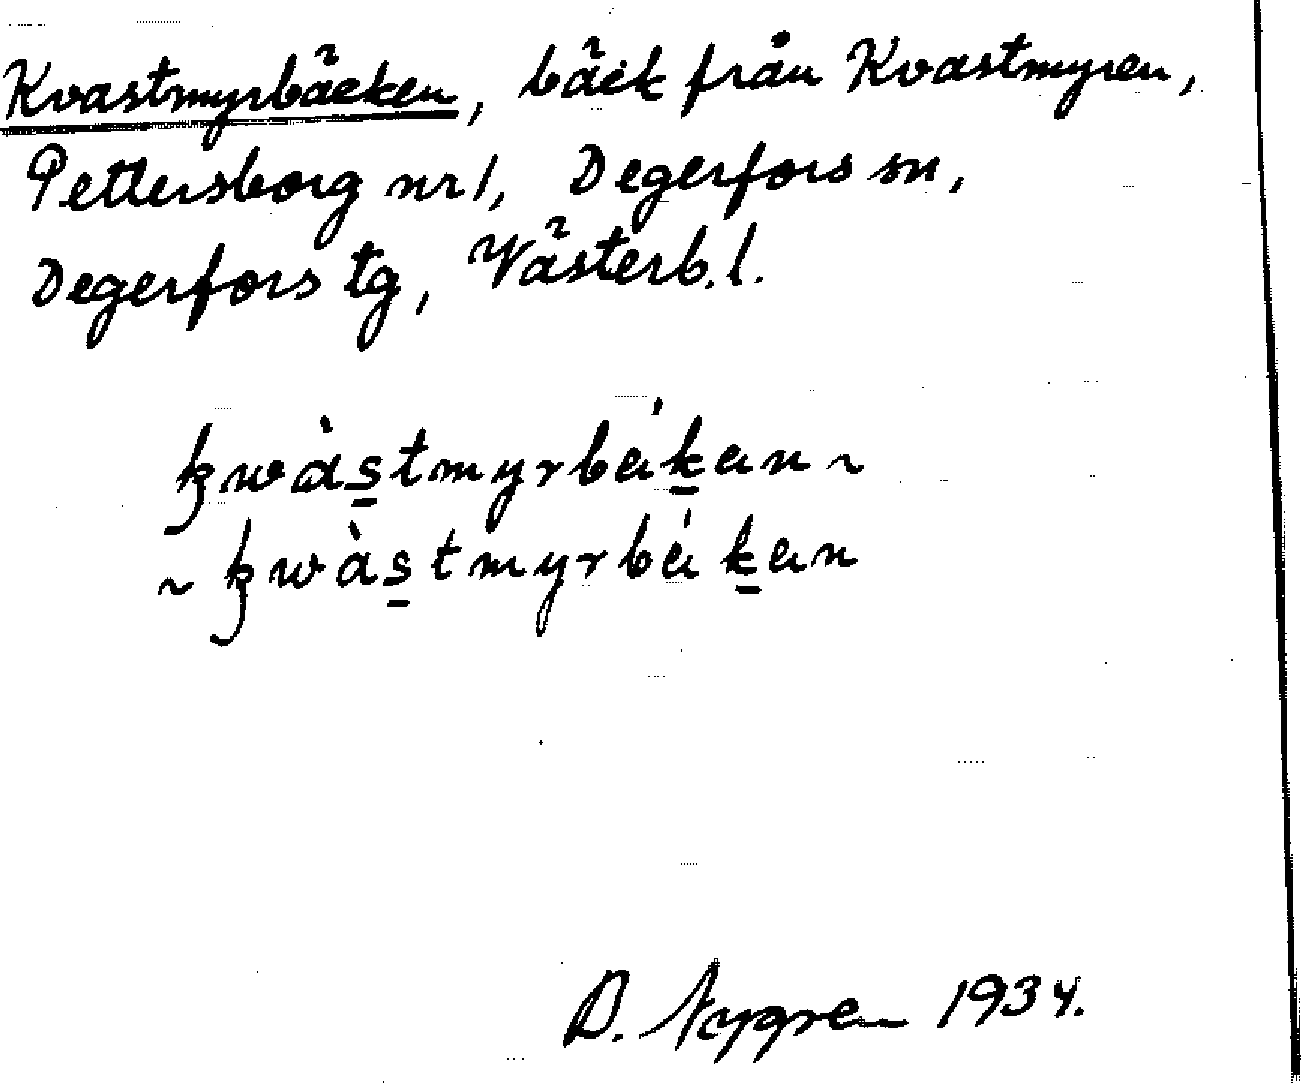 Kvastmyrbäcken, bäck från Kvastmyren,
Pettersborg nr 1, Degerfors sn,
Degerfors tg, Västerb. l.
kwàs̲tmyrbék̲en ~
~ kwàs̲tmyrbék̲en
D. Nygren 1934.